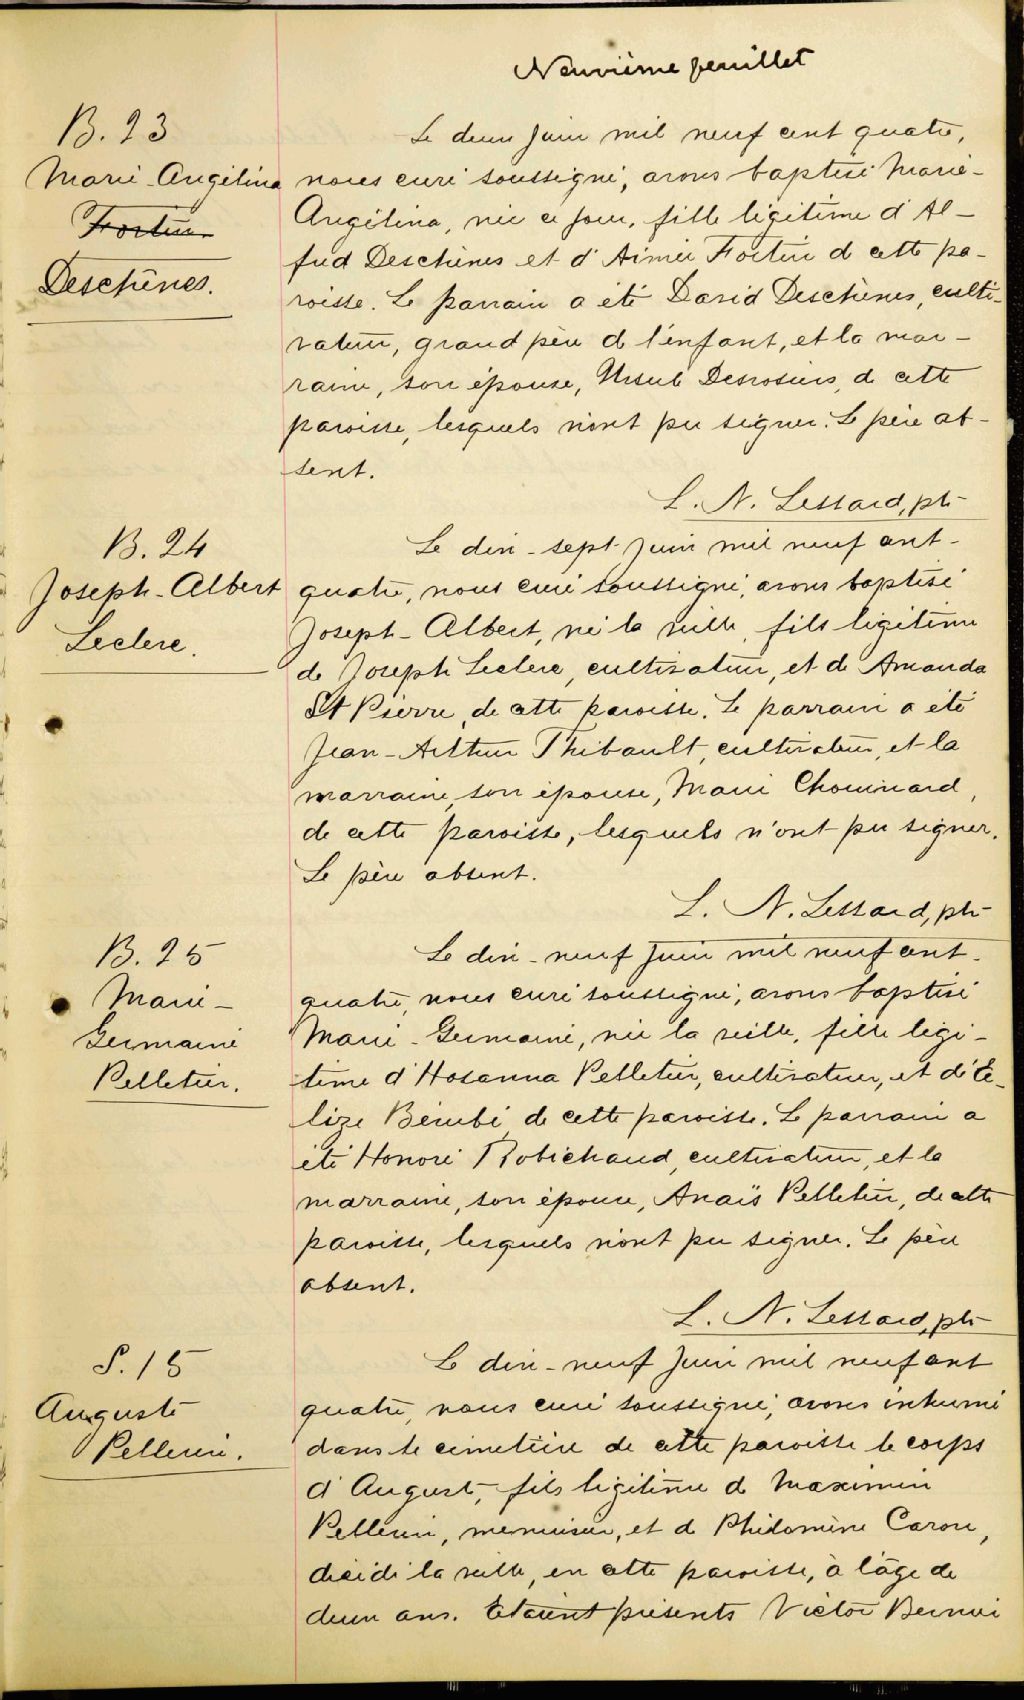 Neuvième feuillet
B. 23
Marie-Angélina
Fortin
Deschênes.
Le deux Juin mil neuf cent quatre,
nous curé soussigné, avons baptisé Marie-
Angélina, née ce jour, fille légitime d'Al-
fred Deschênes et d'Aimée Fortin de cette pa-
roisse. Le parrain a été David Deschênes, culti-
vateur, grand père de l'enfant, et la mar-
raine, son épouse, Ursule Desrosiers, de cette
paroisse, lesquels n'ont pu signer. Le père ab-
sent.
L. N. Lessard, ptr
B. 24
Joseph-Albert
Leclerc.
Le dix-sept Juin mil neuf cent-
quatre, nous curé soussigné, avons baptisé
Joseph-Albert, né la veille, fils légitime
de Joseph Leclerc, cultivateur, et de Amanda
St Pierre, de cette paroisse. Le parrain a été
Jean-Arthur Thibault, cultivateur, et la
marraine, son épouse, Marie Chouinard,
de cette paroisse, lesquels n'ont pu signer.
Le père absent.
L. N. Lessard, ptr
B. 25
Marie-
Germaine
Pelletier.
Le dix-neuf Juin mil neuf cent-
quatre, nous curé soussigné, avons baptisé
Marie-Germaine, née la veille, fille légi-
time d'Hosanna Pelletier, cultivateur, et d'É-
lize Bérubé, de cette paroisse. Le parrain a
été Honoré Robichaud, cultivateur, et la
marraine, son épouse, Anaïs Pelletier, de cette
paroisse, lesquels n'ont pu signer. Le père
absent.
L. N. Lessard, ptr
S. 15
Auguste
Pellerin.
Le dix-neuf Juin mil neuf cent
quatre, nous curé soussigné, avons inhumé
dans le cimetière de cette paroisse le corps
d'Auguste, fils légitime de Maximin
Pellerin, menuisier, et de Philomène Caron,
décédé la veille, en cette paroisse, à l'âge de
deux ans. Etaient présents Victor Bernier